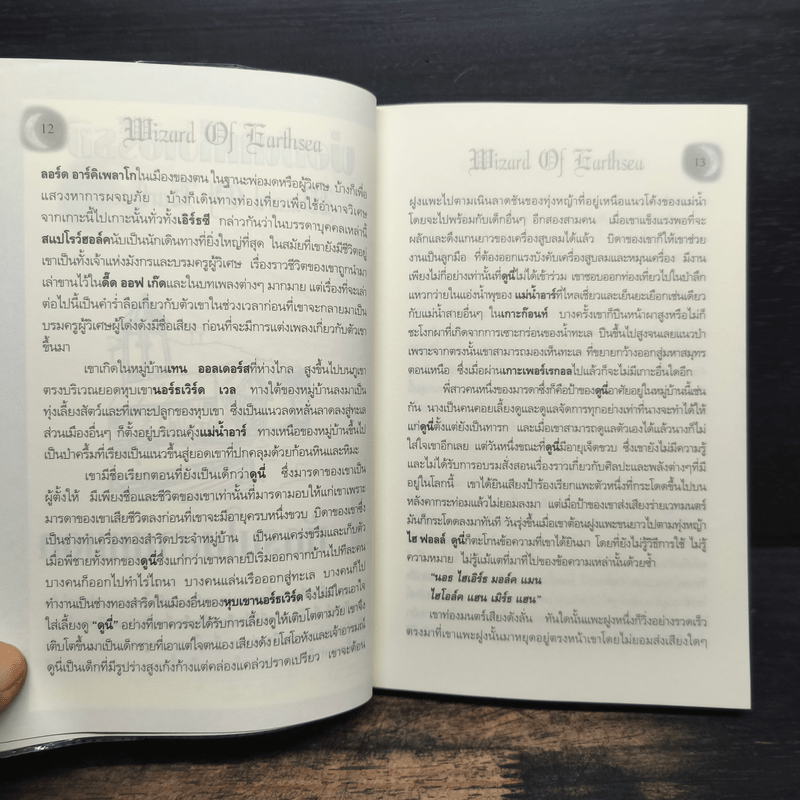 12
Wizard Of Earthsea
ลอร์ด อาร์คิเพลาโกในเมืองของตน ในฐานะพ่อมดหรือผู้วิเศษ บ้างก็เพื่อ
แสวงหาการผจญภัย บ้างก็เดินทางท่องเที่ยวเพื่อใช้อำนาจวิเศษ
จากเกาะนี้ไปเกาะนั้นทั่วทั้งเอิร์ธซี กล่าวกันว่าในบรรดาบุคคลเหล่านี้
สแปโรว์ฮอล์คนับเป็นนักเดินทางที่ยิ่งใหญ่ที่สุด ในสมัยที่เขายังมีชีวิตอยู่
เขาเป็นทั้งเจ้าแห่งมังกรและบรมครูผู้วิเศษ เรื่องราวชีวิตของเขาถูกนำมา
เล่าขานไว้ในดี๊ด ออฟ เก๊ดและในบทเพลงต่างๆ มากมาย แต่เรื่องที่จะเล่า
ต่อไปนี้เป็นคำร่ำลือเกี่ยวกับตัวเขาในช่วงเวลาก่อนที่เขาจะกลายมาเป็น
บรมครูผู้วิเศษผู้โด่งดังมีชื่อเสียง ก่อนที่จะมีการแต่งเพลงเกี่ยวกับตัวเขา
ขึ้นมา
เขาเกิดในหมู่บ้านเทน ออลเดอร์สที่ห่างไกล สูงขึ้นไปบนภูเขา
ตรงบริเวณยอดหุบเขานอร์ธเวิร์ด เวล ทางใต้ของหมู่บ้านลงมาเป็น
ทุ่งเลี้ยงสัตว์และที่เพาะปลูกของหุบเขา ซึ่งเป็นแนวลดหลั่นลาดลงสู่ทะเล
ส่วนเมืองอื่นๆ ก็ตั้งอยู่บริเวณคุ้งแม่น้ำอาร์ ทางเหนือของหมู่บ้านขึ้นไป
เป็นป่าครึ้มที่เรียงเป็นแนวขึ้นสู่ยอดเขาที่ปกคลุมด้วยก้อนหินและหิมะ
เขามีชื่อเรียกตอนที่ยังเป็นเด็กว่าดูนี่ ซึ่งมารดาของเขาเป็น
ผู้ตั้งให้ มีเพียงชื่อและชีวิตของเขาเท่านั้นที่มารดามอบให้แก่เขาเพราะ
มารดาของเขาเสียชีวิตลงก่อนที่เขาจะมีอายุครบหนึ่งขวบ บิดาของเขา
ซึ่งเป็นช่างทำเครื่องทองสำริดประจำหมู่บ้าน เป็นคนเคร่งขรึมและเก็บตัว
เมื่อพี่ชายทั้งหกของดูนี่ซึ่งแก่กว่าเขาหลายปีเริ่มออกจากบ้านไปทีละคน
บางคนก็ออกไปทำไร่ไถนา บางคนแล่นเรือออกสู่ทะเล บางคนก็ไป
ทำงานเป็นช่างทองสำริดในเมืองอื่นของหุบเขานอร์ธเวิร์ด จึงไม่มีใครเอาใจ
ใส่เลี้ยงดู “ดูนี่” อย่างที่เขาควรจะได้รับการเลี้ยงดูให้เติบโตตามวัย เขาจึง
เติบโตขึ้นมาเป็นเด็กชายที่เอาแต่ใจตนเอง เสียงดัง ยโสโอหังและเจ้าอารมณ์
ดูนี่เป็นเด็กที่มีรูปร่างสูงเก้งก้างแต่คล่องแคล่วปราดเปรียว เขาจะต้อน
Wizard Of Earthsea
13
ฝูงแพะไปตามเนินลาดชันของทุ่งหญ้าที่อยู่เหนือแนวโค้งของแม่น้ำ
โดยจะไปพร้อมกับเด็กอื่นๆ อีกสองสามคน เมื่อเขาแข็งแรงพอที่จะ
ผลักและดึงแกนยาวของเครื่องสูบลมได้แล้ว บิดาของเขาก็ให้เขาช่วย
งานเป็นลูกมือ ที่ต้องออกแรงบังคับเครื่องสูบลมและหมุนเครื่อง มีงาน
เพียงไม่กี่อย่างเท่านั้นที่ดูนี่ไม่ได้เข้าร่วม เขาชอบออกท่องเที่ยวไปในป่าลึก
แหวกว่ายในแอ่งน้ำพุของ แม่น้ำอาร์ที่ไหลเชี่ยวและเย็นยะเยือกเช่นเดียว
กับแม่น้ำสายอื่นๆ ในเกาะก๊อนท์ บางครั้งเขาก็ปีนหน้าผาสูงหรือไม่ก็
ชะโงกผาที่เกิดจากการเซาะกร่อนของน้ำทะเล ปีนขึ้นไปสูงจนเลยแนวป่า
เพราะจากตรงนั้นเขาสามารถมองเห็นทะเล ที่ขยายกว้างออกสู่มหาสมุทร
ตอนเหนือ ซึ่งเมื่อผ่านเกาะเพอร์เรกอลไปแล้วก็จะไม่มีเกาะอื่นใดอีก
พี่สาวคนหนึ่งของมารดาซึ่งก็คือป้าของดูนี่อาศัยอยู่ในหมู่บ้านนี้เช่น
กัน นางเป็นคนคอยเลี้ยงดูและดูแลจัดการทุกอย่างเท่าที่นางจะทำได้ให้
แก่ดูนี่ตั้งแต่ยังเป็นทารก และเมื่อเขาสามารถดูแลตัวเองได้แล้วนางก็ไม่
ใส่ใจเขาอีกเลย แต่วันหนึ่งขณะที่ดูนี่มีอายุเจ็ดขวบ ซึ่งเขายังไม่มีความรู้
และไม่ได้รับการอบรมสั่งสอนเรื่องราวเกี่ยวกับศิลปะและพลังต่างๆที่มี
อยู่ในโลกนี้ เขาได้ยินเสียงป้าร้องเรียกแพะตัวหนึ่งที่กระโดดขึ้นไปบน
หลังคากระท่อมแล้วไม่ยอมลงมา แต่เมื่อป้าของเขาส่งเสียงร่ายเวทมนตร์
มันก็กระโดดลงมาทันที วันรุ่งขึ้นเมื่อเขาต้อนฝูงแพะขนยาวไปตามทุ่งหญ้า
ไฮ ฟอลล์ ดูนี่ก็ตะโกนข้อความที่เขาได้ยินมา โดยที่ยังไม่รู้วิธีการใช้ ไม่รู้
ความหมาย ไม่รู้แม้แต่ที่มาที่ไปของข้อความเหล่านั้นด้วยซ้ำ
“นอธ ไฮเอิร์ธ มอล์ค แมน
ไฮโอล์ค แฮน เมิร์ธ แฮน”
เขาท่องมนตร์เสียงดังลั่น ทันใดนั้นแพะฝูงหนึ่งก็วิ่งอย่างรวดเร็ว
ตรงมาที่เขาแพะฝูงนั้นมาหยุดอยู่ตรงหน้าเขาโดยไม่ยอมส่งเสียงใดๆ